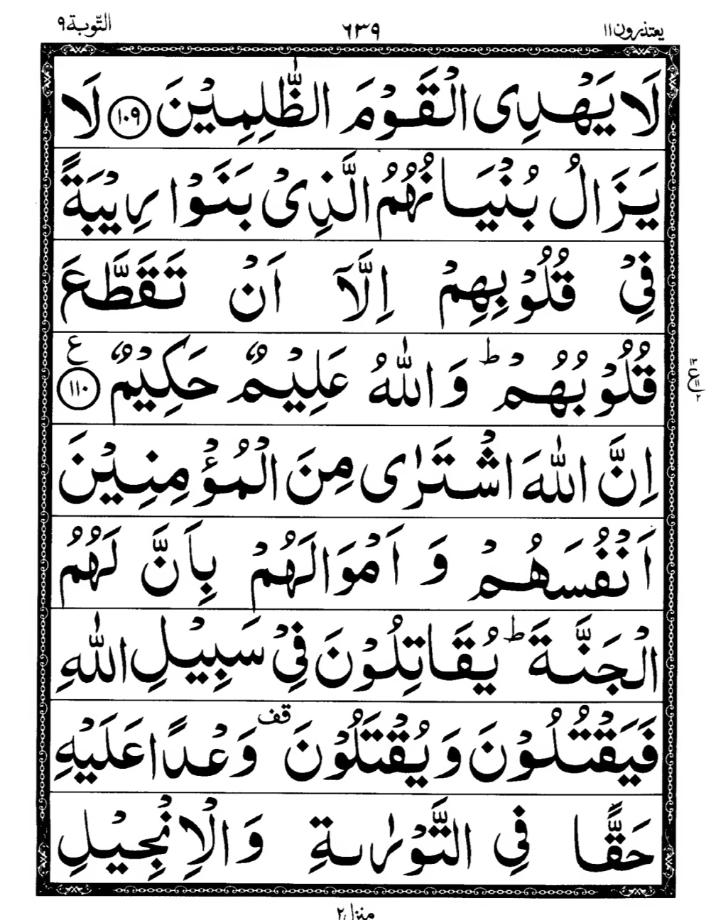 يعتذرون١١ ٦٣٩ التّوبة٩
لَا يَهْدِى الْقَوْمَ الظّٰلِمِيْنَ ﴿١٠٩﴾ لَا
يَزَالُ بُنْيَانُهُمُ الَّذِىْ بَنَوْا رِيْبَةً
فِىْ قُلُوْبِهِمْ اِلَّآ اَنْ تَقَطَّعَ
قُلُوْبُهُمْ ؕ وَ اللّٰهُ عَلِيْمٌ حَكِيْمٌ ﴿١١٠﴾ ع
١٣ ع ١١ ٢
اِنَّ اللّٰهَ اشْتَرٰى مِنَ الْمُؤْمِنِيْنَ
اَنْفُسَهُمْ وَ اَمْوَالَهُمْ بِاَنَّ لَهُمُ
الْجَنَّةَ ؕ يُقَاتِلُوْنَ فِىْ سَبِيْلِ اللّٰهِ
فَيَقْتُلُوْنَ وَيُقْتَلُوْنَ قف وَعْدًا عَلَيْهِ
حَقًّا فِى التَّوْرٰىةِ وَالْاِنْجِيْلِ
منزل٢